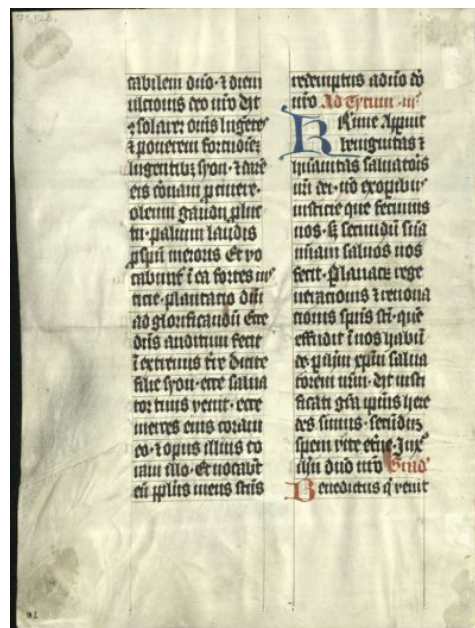 tabilem dn̄o · ⁊ diem
ulcionis deo nr̄o vt
ꝯsolarer om̄s lugētes
⁊ ponerem fortitudīeꝫ
lugentibꝫ syon · ⁊ darē
eis coronam ꝓ cinere ·
oleum gaudii ꝓ luc
tu · palium laudis
ꝓ spū meroris Et vo
cabunt̄ ī ea fortes ius
ticie · plantacio dn̄i
ad glorificandū Ecce
dn̄s auditum fecit
ī extremis tr̄e dicite
filie syon · ecce salua
tor tuus venit · ecce
merces eius coram
eo · ⁊ opus illius co
ram illo · Et uocabūt
eū ppl̄us meus sc̄us
redemptus a dn̄o do
nr̄o Ad Tytum · iii
Kr̄ime Apparuit
benignitas ⁊
hūanitas saluatoris
nr̄i dei · nō ex opibꝫ
iusticie que fecimus
nos · sꝫ secundū suā
mīam saluos nos
fecit · Ꝑ lauacꝝ rege
neracionis ⁊ renoua
cionis spūs sc̄i · quē
effudit ī nos habūd
de p̱ ih̄m xp̄m salua
torem nr̄m · vt iusti
ficati gr̄a ipsius here
des simus · secūduꝫ
spem vite et̄ne · In xp̄o
ih̄u dn̄o nr̄o Grad̄
Benedictus q̄ venit